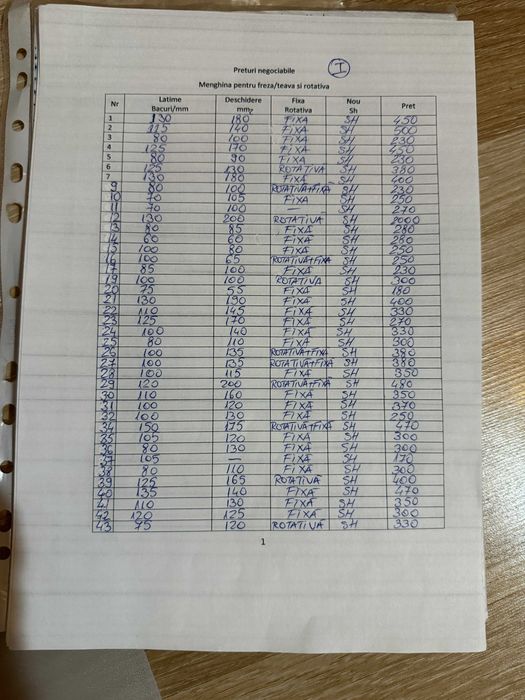 I
Preturi negociabile
Menghina pentru freza/teava si rotativa
Nr Latime Bacuri/mm Deschidere mm Fixa Rotativa Nou Sh Pret
1 130 180 FIXA SH 450
2 115 140 FIXA SH 500
3 80 100 FIXA SH 230
4 125 170 FIXA SH 450
5 80 90 FIXA SH 230
6 125 130 ROTATIVA SH 380
7 130 180 FIXA SH 400
9 80 100 ROTATIVA+FIXA SH 230
10 70 105 FIXA SH 250
11 70 100 — SH 270
12 130 200 ROTATIVA SH 2000
13 80 85 FIXA SH 280
14 60 60 FIXA SH 280
15 100 80 FIXA SH 250
16 100 65 ROTATIVA+FIXA SH 250
17 85 100 FIXA SH 230
19 100 100 ROTATIVA SH 300
20 75 55 FIXA SH 180
21 130 190 FIXA SH 400
22 110 145 FIXA SH 330
23 125 170 FIXA SH 270
24 100 140 FIXA SH 330
25 80 110 FIXA SH 300
26 100 135 ROTATIVA+FIXA SH 380
27 100 135 ROTATIVA+FIXA SH 380
28 100 115 FIXA SH 350
29 120 200 ROTATIVA+FIXA SH 480
30 110 160 FIXA SH 350
31 100 120 FIXA SH 370
32 100 130 FIXA SH 250
34 150 175 ROTATIVA+FIXA SH 470
35 105 120 FIXA SH 300
36 80 130 FIXA SH 300
37 105 — FIXA SH 170
38 80 110 FIXA SH 300
39 125 165 ROTATIVA SH 400
40 135 140 FIXA SH 470
41 110 130 FIXA SH 350
42 120 125 FIXA SH 300
43 75 120 ROTATIVA SH 330
1